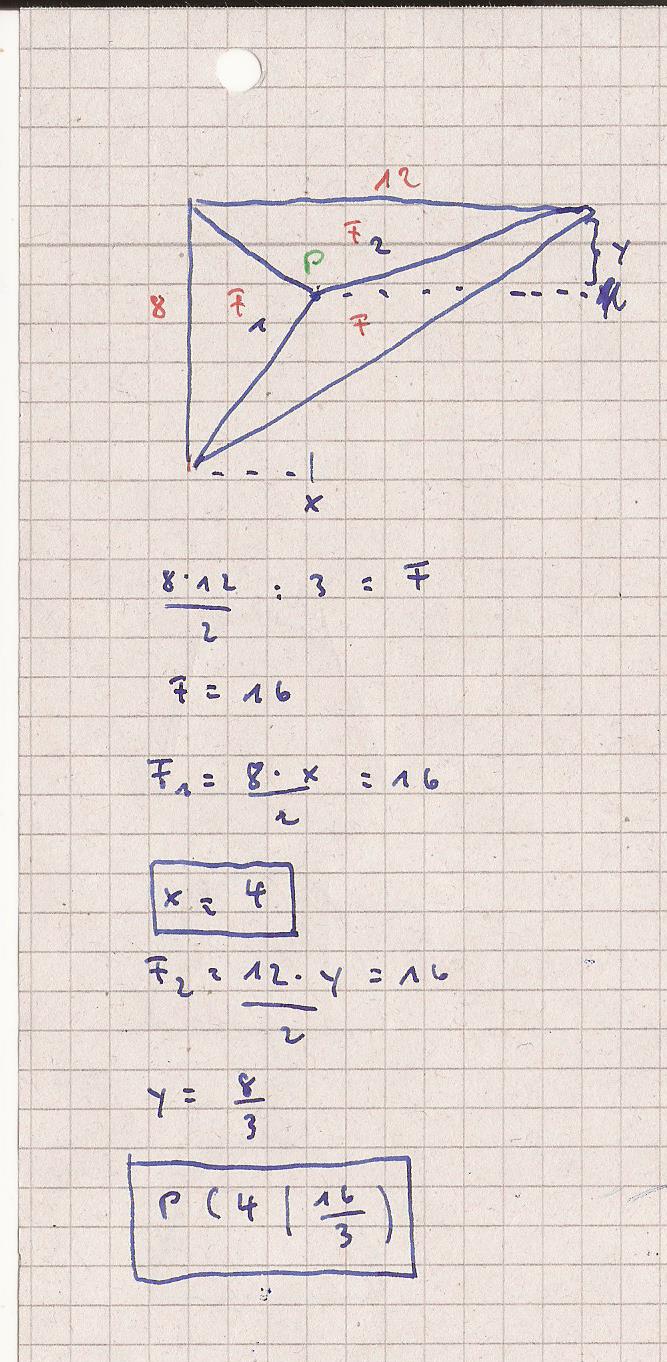 12
F2
P
y
8
F1
F
x
8·12/2 : 3 = F
F = 16
F1 = 8·x/2 = 16
x = 4
F2 = 12·y/2 = 16
y = 8/3
P (4 | 16/3)